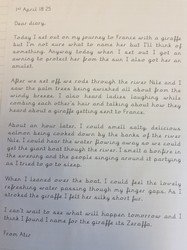 1st April 1825
Dear diary,
Today I set out on my journey to France with a giraffe
but I'm not sure what to name her but I'll think of
something. Anyway today when I set out I got an
awning to protect her from the sun I also got her an
amulet.
After we set off we rode through the river Nile and I
saw the palm trees being swished all about from the
windy breeze. I also heard ladies, laughing while
combing each other's hair and talking about how they
heard about a giraffe getting sent to France.
About an hour later, I could smell salty, delicious
salmon being cooked by the banks of the river
Nile. I could hear the water flowing away so we could
get the giant boat though the river. I smelt a bonfire in
the evening and the people singing around it partying
as I tried to go to sleep.
When I leaned over the boat, I could feel the lovely
refreshing water passing though my finger gaps. As I
stroked the giraffe I felt her silky short fur.
I can't wait to see what will happen tomorrow and I
think I found a name for the giraffe its Zeraffa.
From Atir